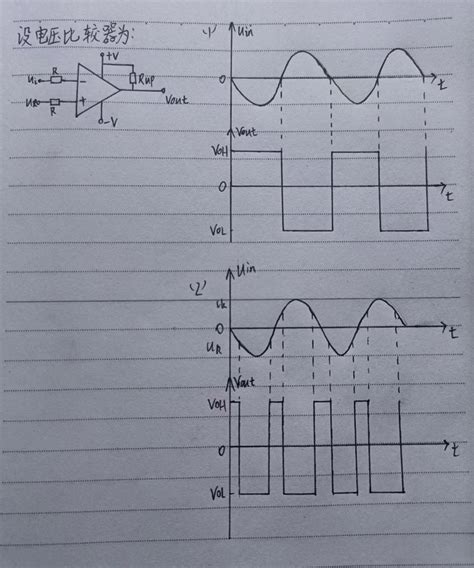 设电压比较器为:
+V
Ui
R
Rup
UR
R
Vout
-V
(1)
Uin
0
t
Vout
VOH
0
t
VOL
(2)
Uin
0
t
UR
Vout
VOH
0
t
VOL